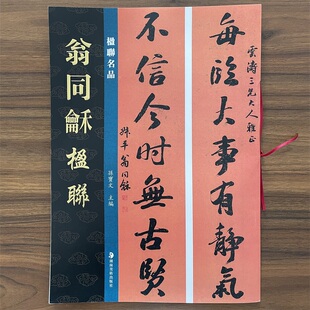 雲濤三兄大人雅正
每臨大事有靜氣
不信今時無古賢
叔平翁同龢
楹聯名品
翁同龢楹聯
孫寶文 主編